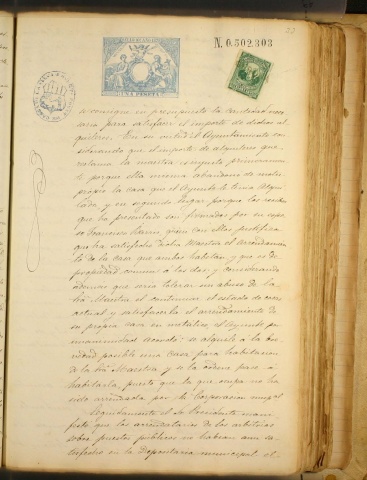 N. 0.302.303
se consigne en presupuesto la cantidad nece
saria para satisfacer el importe de dichos al
quileres. En su virtud el Ayuntamiento con
siderando que el importe de alquileres que
reclama la maestra
porque ella misma abandonó de motu
propio la casa que el Ayunto. le tenia alqui
lada, y en segundo lugar porque los recibos
que ha presentado son firmados por su espo
so Francisco quien con ellos justifica
que ha satisfecho dicha Maestra el arrendamien
to de la casa que ambos habitan, y que es de
propiedad comun a los dos; y considerando
ademas que seria tolerar un abuso de la
Sra. Maestra el continuar el estado de cosas
actual y satisfacerla el arrendamiento de
su propia casa en metalico, el Ayunto. por
unanimidad acordó: se alquile a la bre
vedad posible una casa para habitacion
de la Sra. Maestra y se la ordene pase a
habitarla, puesto que la que ocupa no ha
sido arrendada por la Corporacion mpal.
Seguidamente el Sr. Presidente mani
festó que los arrendatarios de los arbitrios
sobre puestos publicos no habian aun sa
tisfecho en la Depositaria municipal el